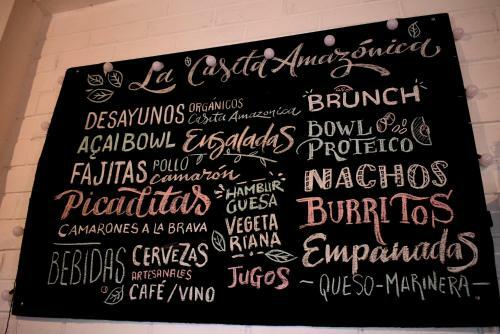 La Casita Amazónica
DESAYUNOS ORGÁNICOS
Casita Amazónica
AÇAI BOWL Ensaladas
FAJITAS POLLO
camarón
Picaditas
CAMARONES A LA BRAVA
HAMBUR
GUESA
VEGETA
RIANA
BEBIDAS CERVEZAS
ARTESANALES
CAFÉ/VINO
JUGOS
BRUNCH
BOWL
PROTEICO
NACHOS
BURRITOS
Empanadas
-QUESO-MARINERA-